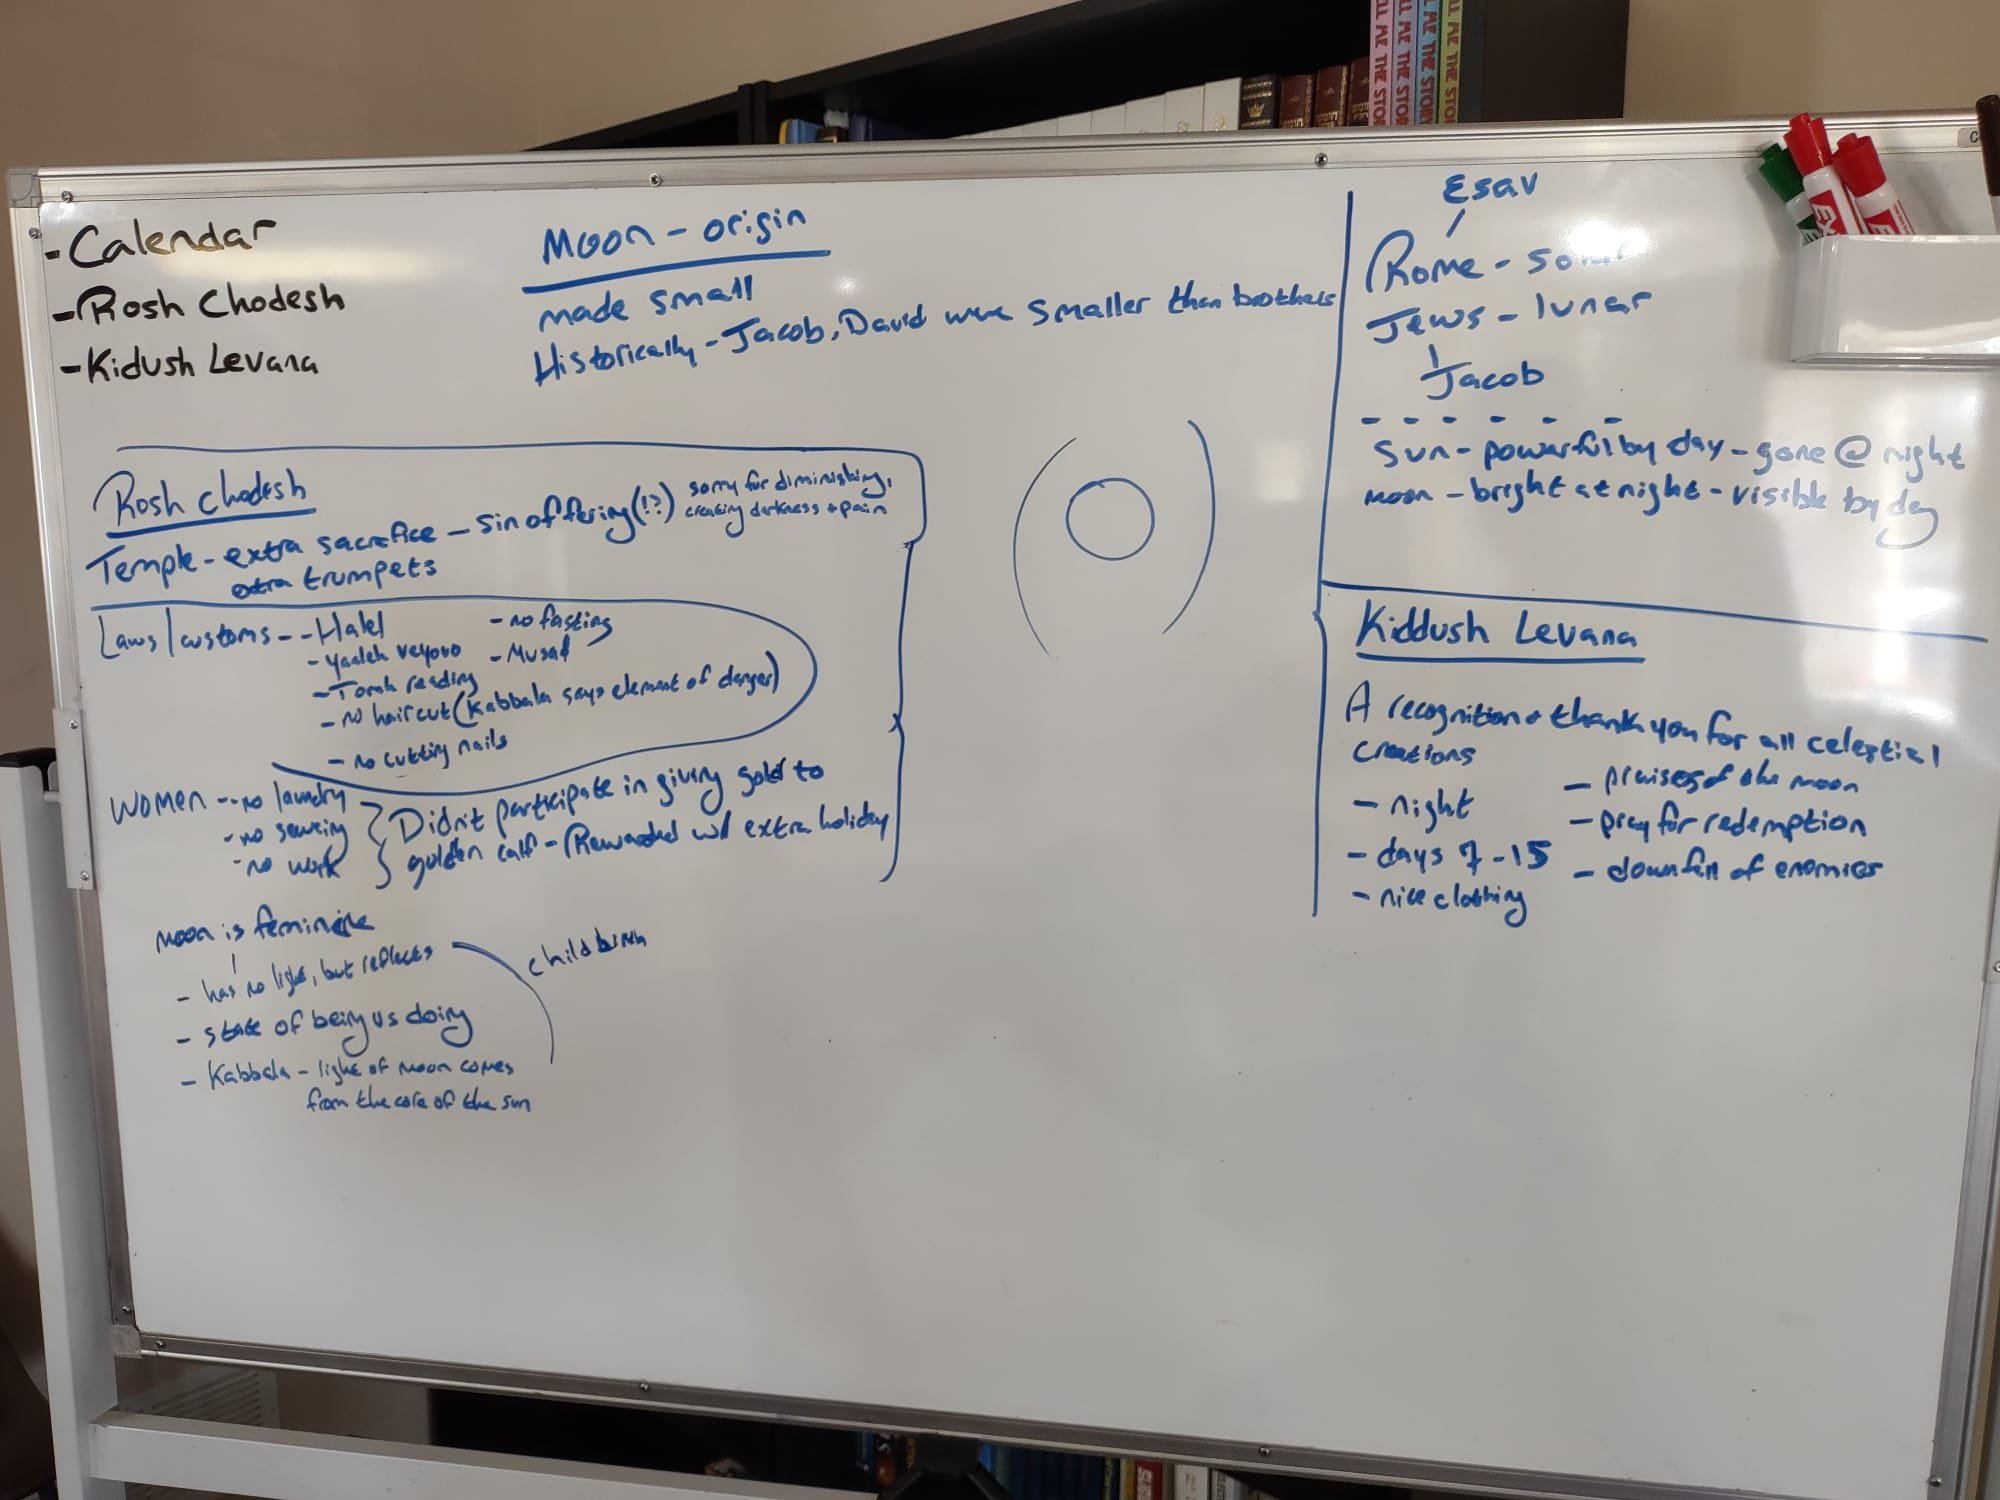 -Calendar
-Rosh Chodesh
-Kidush Levana
Moon - origin
made small
Historically - Jacob, David were smaller than brothers
Esav
Rome - so
Jews - lunar
Jacob
Sun - powerful by day - gone @ night
moon - bright at night - visible by day
Rosh chodesh
Temple - extra sacrefice - sin offering (!?) sorry for diminishing,
creating darkness + pain
extra trumpets
Laws/customs - - Halel
- yaaleh veyovo
- Torah reading
- no haircut (Kabbala says element of danger)
- no cutting nails
- no fasting
- Musaf
Women - - no laundry
- no sewing
- no work
Didn't participate in giving gold to
golden calf - Rewarded w/ extra holiday
moon is feminine
- has no light, but reflects
- state of being vs doing
- Kabbala - light of moon comes
from the core of the sun
childbirth
Kiddush Levana
A recognition + thank you for all celestial
creations
- night
- days 7-15
- nice clothing
- praises of the moon
- pray for redemption
- downfall of enemies
ALL ME THE STOR
ME THE STOR
ME THE STORY
ME THE STORY
EX